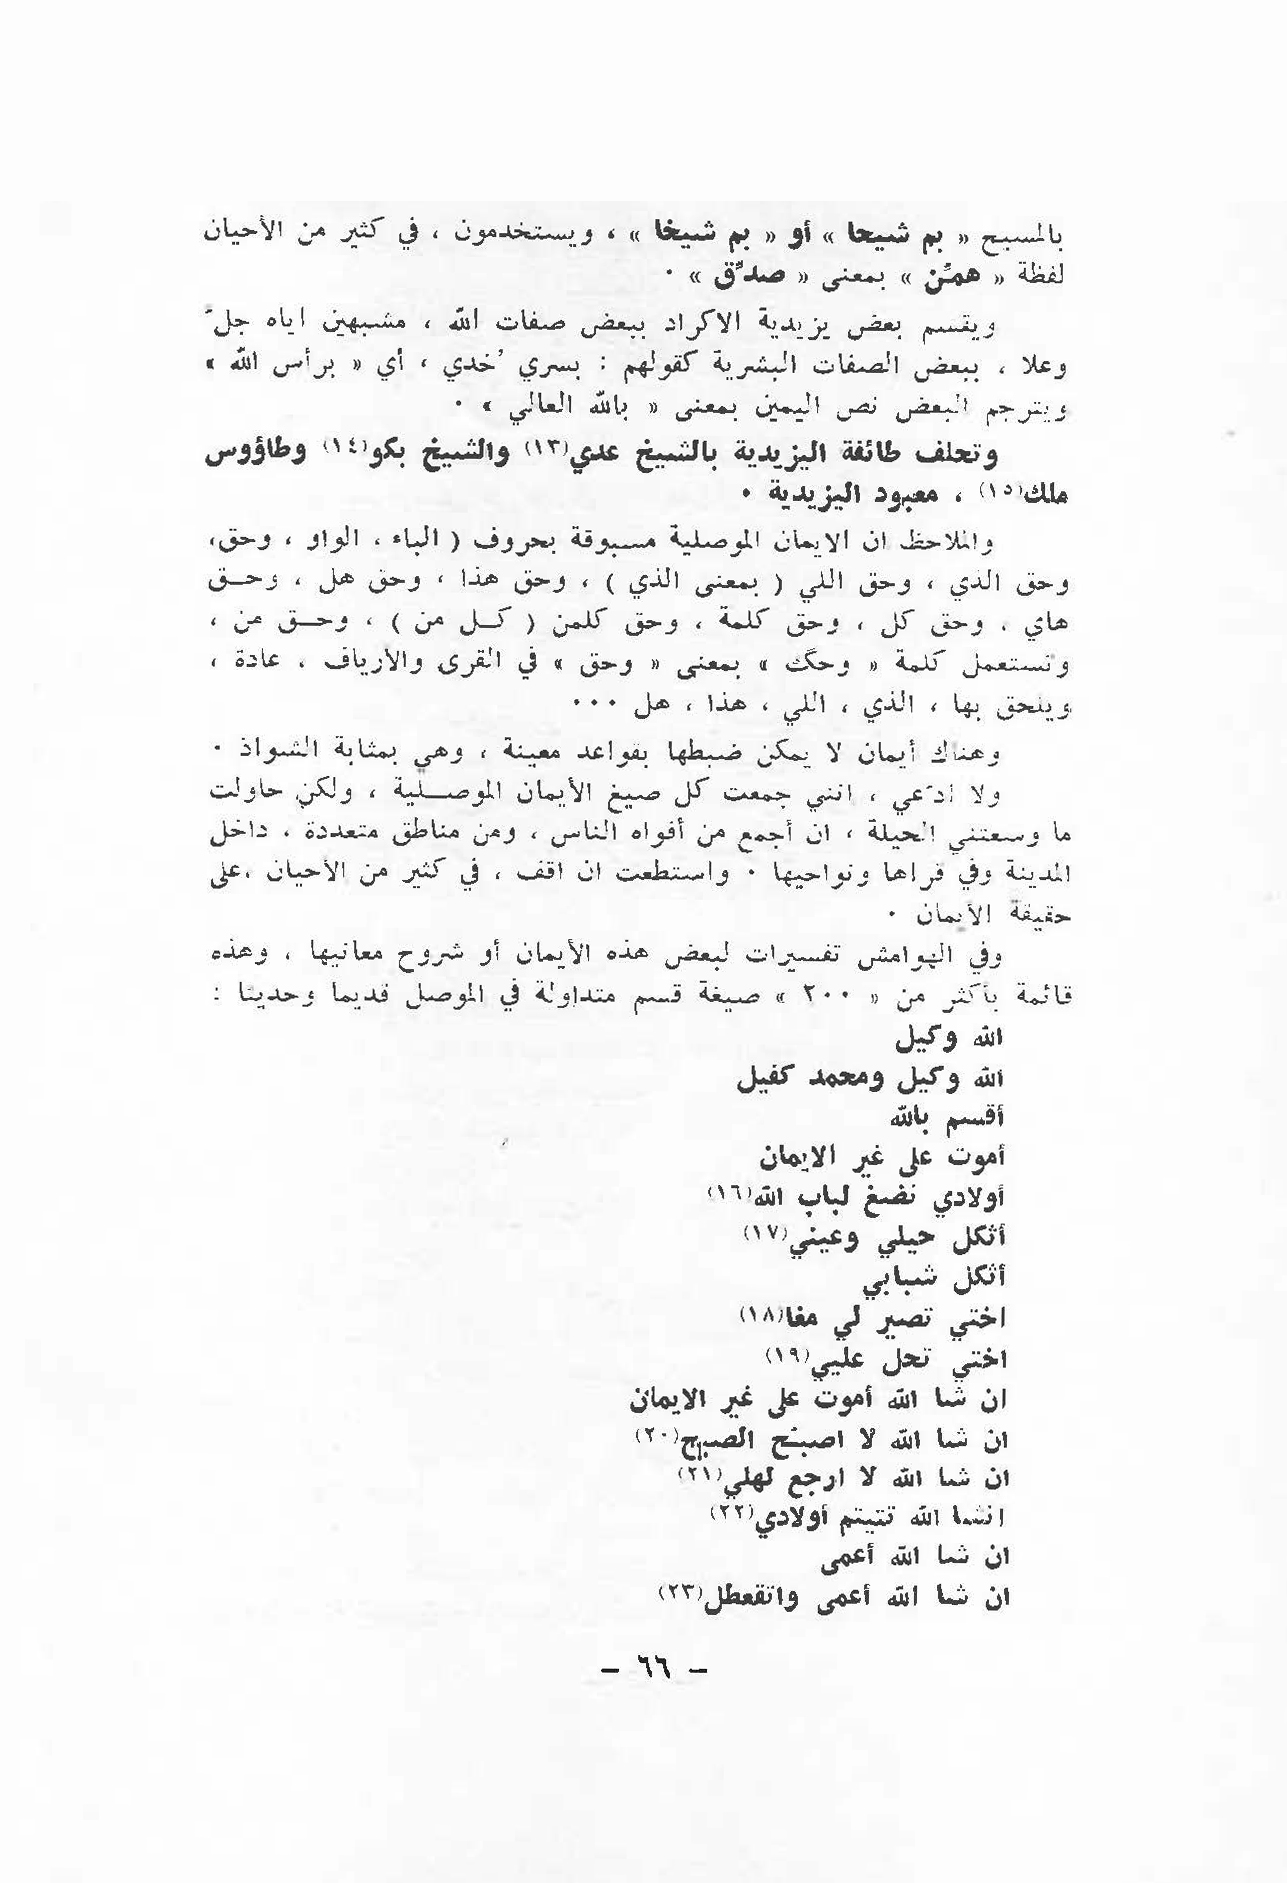 بالمسيح « بم شيحا » أو « بم شيخا » ، ويستخدمون ، في كثير من الأحيان
لفظة « همّن » بمعنى « صدّق » .
ويقسم بعض يزيدية الاكراد ببعض صفات الله ، مشبهين اياه جلّ
وعلا ، ببعض الصفات البشرية كقولهم : بسري خُدي ، أي « برأس الله »
ويترجم البعض نص اليمين بمعنى « بالله العالي » .
وتحلف طائفة اليزيدية بالشيخ عدي(١٣) والشيخ بكو(١٤) وطاؤوس
ملك(١٥) ، معبود اليزيدية .
والملاحظ ان الايمان الموصلية مسبوقة بحروف ( الباء ، الواو ، وحق،
وحق الذي ، وحق اللي ( بمعنى الذي ) ، وحق هذا ، وحق هل ، وحـق
هاي ، وحق كل ، وحق كلمة ، وحق كلمن ( كـل من ) ، وحـق من ،
وتستعمل كلمة « وحگ » بمعنى « وحق » في القرى والارياف ، عادة ،
ويلحق بها ، الذي ، اللي ، هذا ، هل ...
وهناك أيمان لا يمكن ضبطها بقواعد معينة ، وهي بمثابة الشواذ .
ولا ادّعي ، انني جمعت كل صيغ الأيمان الموصـلية ، ولكن حاولت
ما وسعتني الحيلة ، ان أجمع من أفواه الناس ، ومن مناطق متعددة ، داخل
المدينة وفي قراها ونواحيها . واستطعت ان اقف ، في كثير من الأحيان ،على
حقيقة الأيمان .
وفي الهوامش تفسيرات لبعض هذه الأيمان أو شروح معانيها ، وهذه
قائمة بأكثر من « ٢٠٠ » صيغة قسم متداولة في الموصل قديما وحديثا :
الله وكيل
الله وكيل ومحمد كفيل
أقسم بالله
أموت على غير الايمان
أولادي نضغ لباب الله(١٦)
أثكل حيلي وعيني(١٧)
أثكل شبابي
اختي تصير لي مغا(١٨)
اختي تحل عليي(١٩)
ان شا الله أموت على غير الايمان
ان شا الله لا اصبـّح الصبح(٢٠)
ان شا الله لا ارجع لهلي(٢١)
انشا الله تتيتم أولادي(٢٢)
ان شا الله أعمى
ان شا الله أعمى واتقعطل(٢٣)
– ٦٦ –